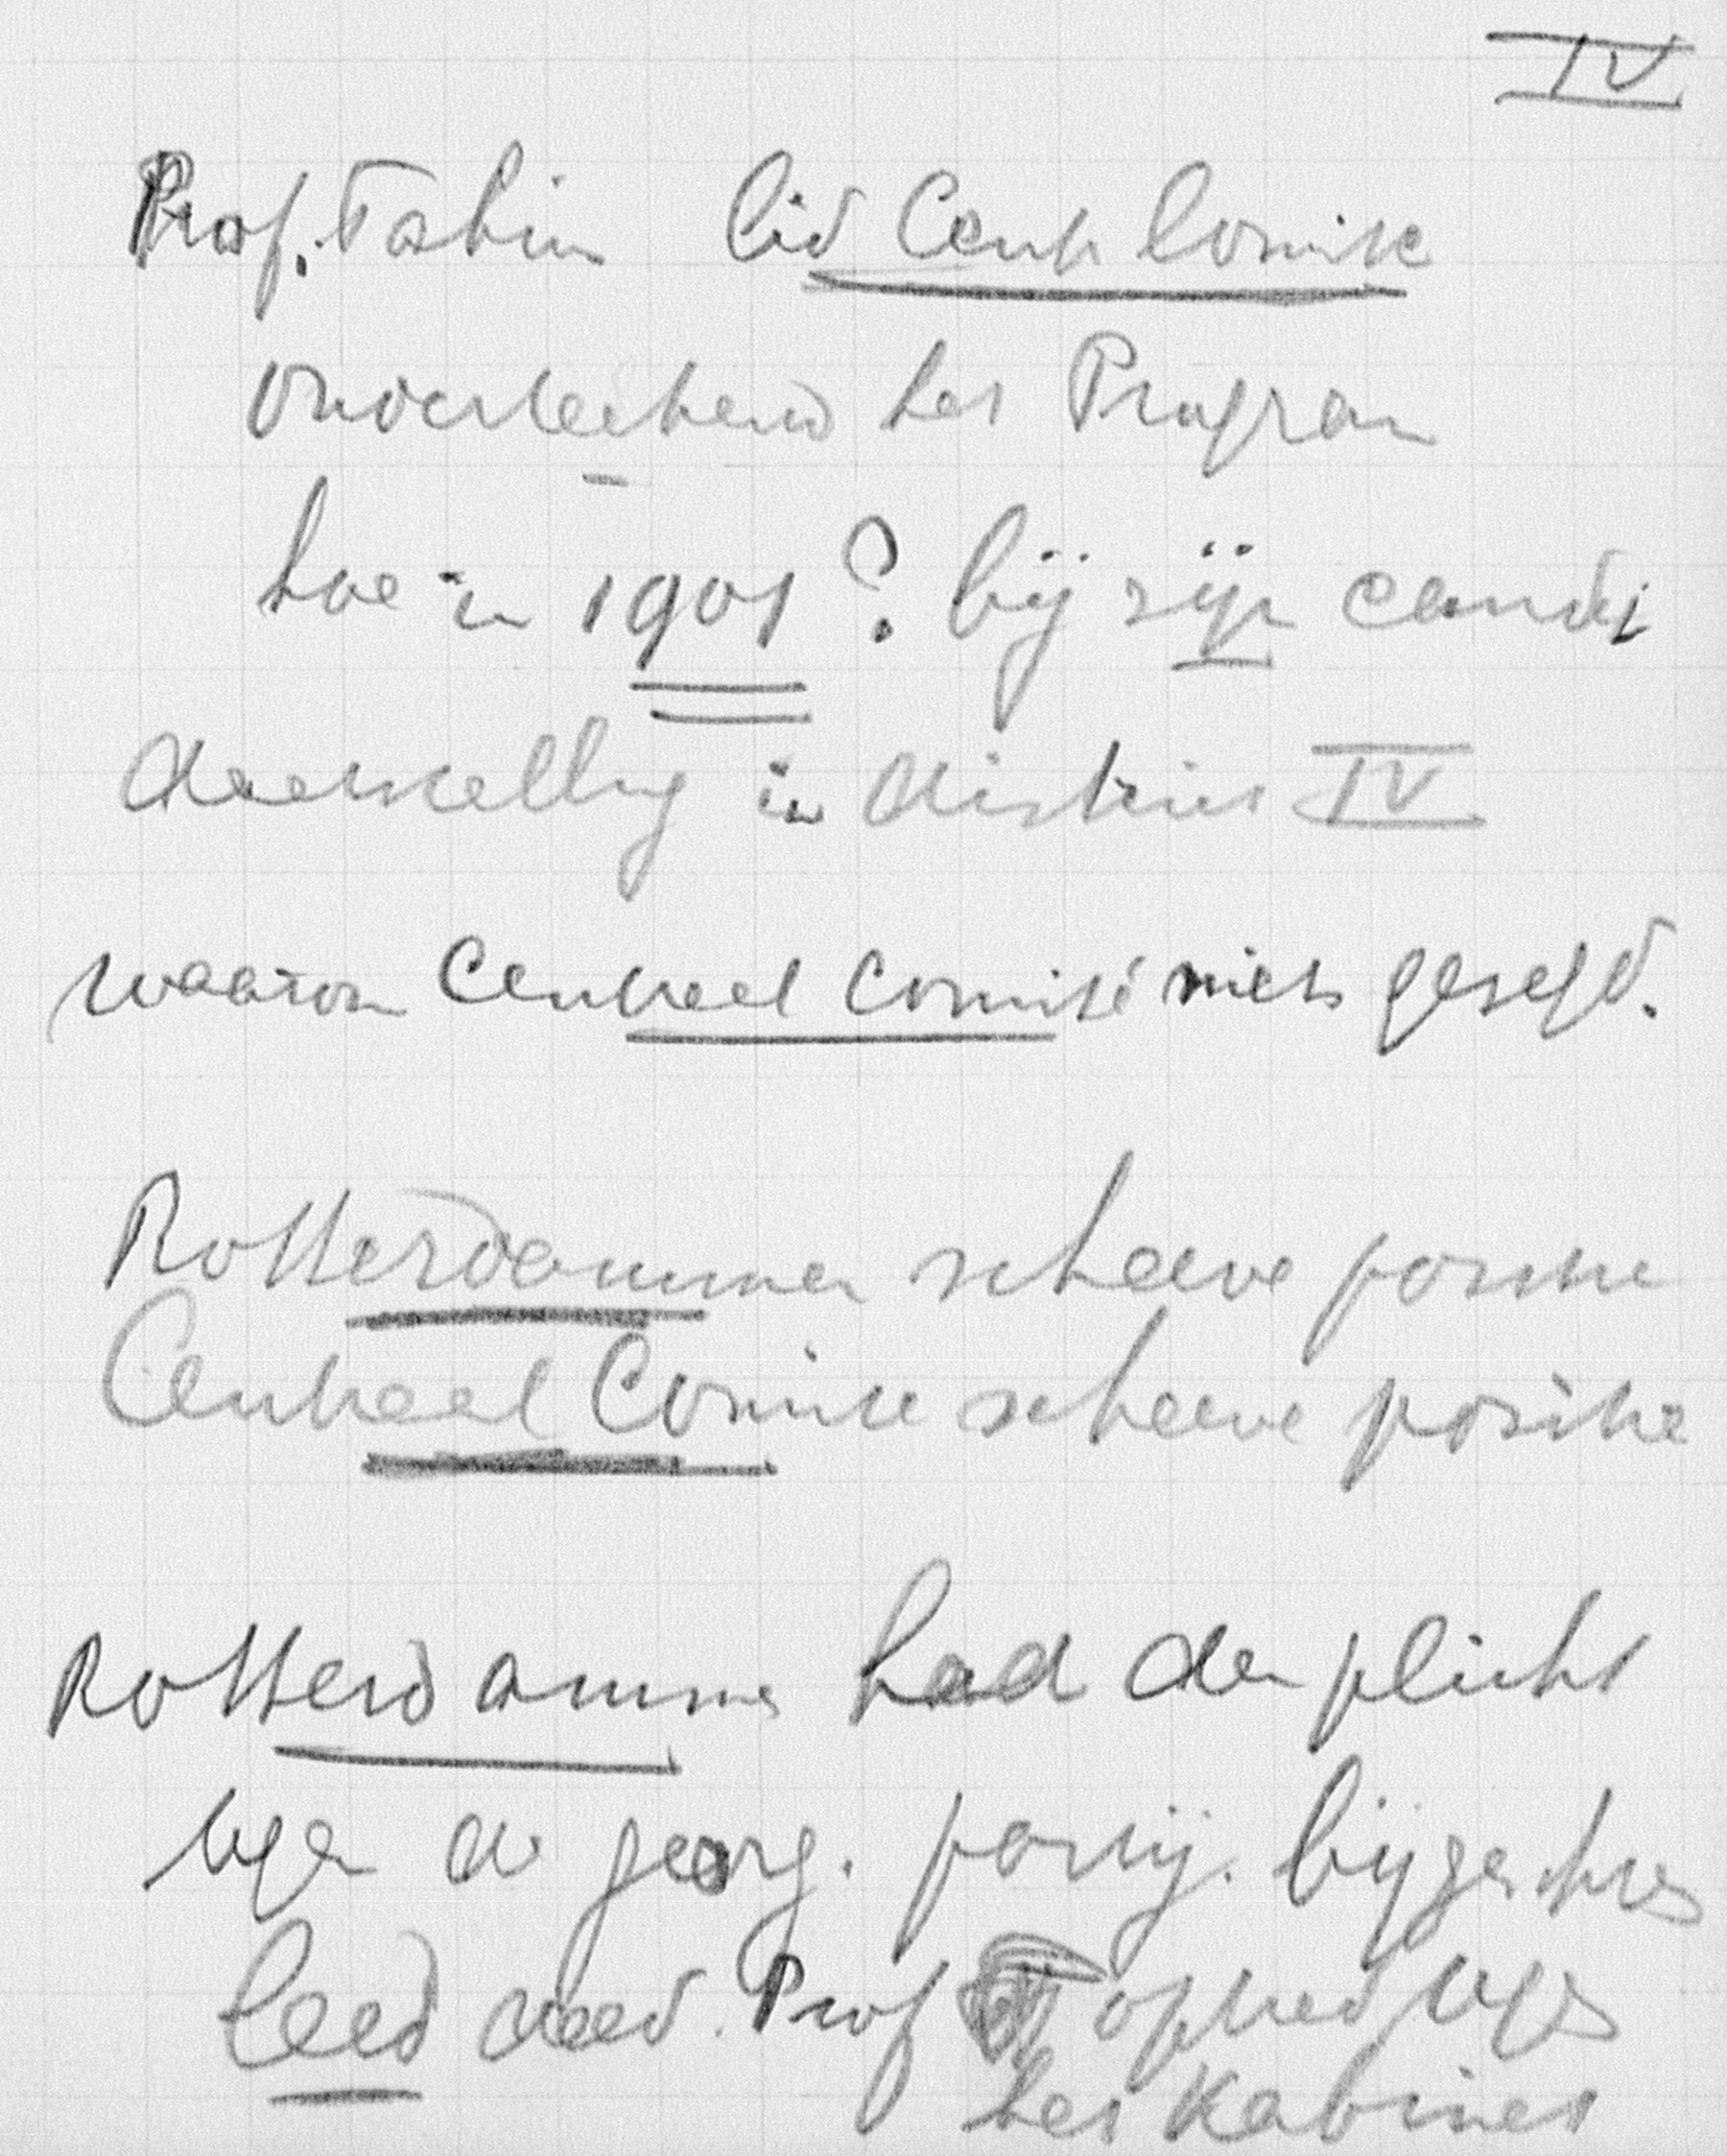 IV
Prof. Fabius lid Centr Comite
onderteekend het Program
hoe in 1901? bij zijn candi
daatstelling in district IV
waarom Centraal Comité niets gezegd.
Rotterdammer scheeve positie
Centraal Comite scheeve positie
Rotterdammer had den plicht
tegen de georg. partij.
leed deed. Prof optred tegen
het Kabinet